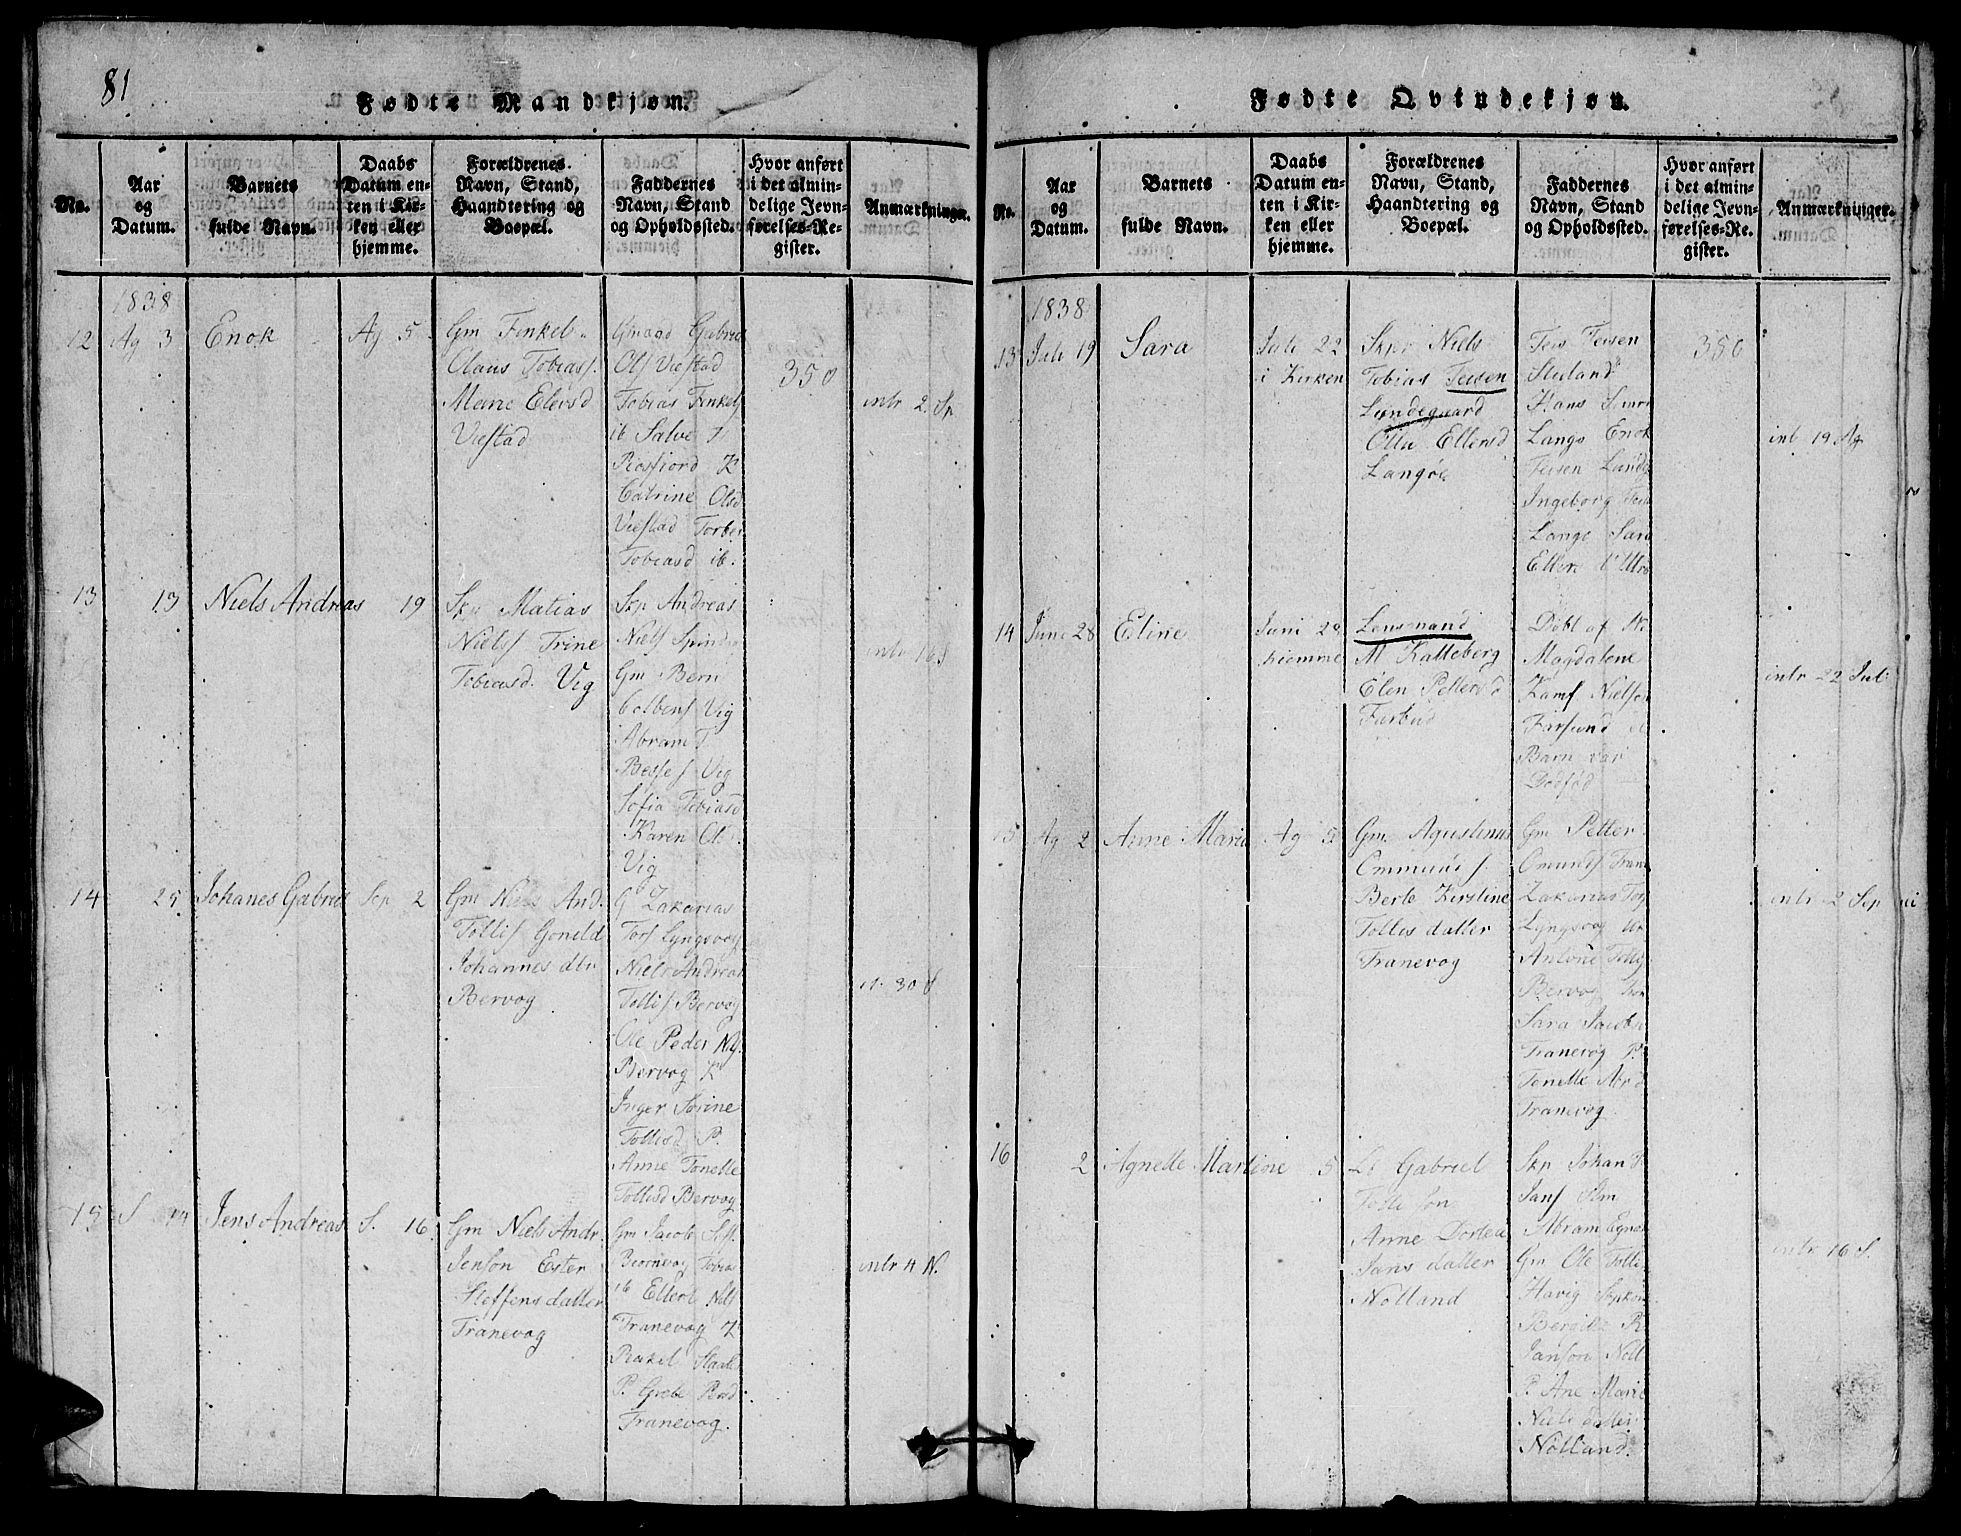 81
Fødte Mandkjøn.
No.
Aar
og
Datum.
Barnets
fulde Navn.
Daabs
Datum en-
ten i Kir-
ken eller
hjemme.
Forældrenes
Navn, Stand,
Haandtering og
Boepæl.
Faddernes
Navn, Stand
og Opholdssted.
Hvor anført
i det almin-
delige Jevn-
førelses-Re-
gister.
Anmærkninger.
1838
12
Ag 3
Enok
Ag 5
Gm Finkel
Olaus Tobiass.
Marie Elevsd
Viestad
Gmaad Gabriel
Ols Viestad
Tobias Finkels
ib Salve T
Rosfiord K
Catrine Olsd
Viestad Torber
Tobiasd ib.
350
intr 2. Sp
13
13
Niels Andreas
19
Skp Matias
Niels Trine
Tobiasd. Vig
Skp Andreas
Niels
Gm Bern
Colbens Vig
Abram T
Besses Vig
Sofia Tobiasd
Karen Ol
Vig
intr 16 S
14
25
Johanes Gabriel
Sep 2
Gm Niels And.
Tollis Gonild
Johannes dtr
Bervog
G Zakarias
Tors Lyngsvog
Niels Andreas
Tollis Bervog
Ole Peder Nils.
Bervog K
Inger Sorine
Tollisd P.
Anne Tonette
Tollisd Bervog
30 S
15
S 14
Jens Andreas
S. 16
Gm Niels Andr.
Jenson Ester
Steffens datter
Tranevog
Gm Jacob
Biornevog Tobias
ib Ellert Nils
Tranevog K
Rakel
P. Grete
Tranevog.
intr 4 N.
Fødte Qvindekjøn.
No.
Aar
og
Datum.
Barnets
fulde Navn.
Daabs
Datum en-
ten i Kir-
ken eller
hjemme.
Forældrenes
Navn, Stand,
Haandtering og
Boepæl.
Faddernes
Navn, Stand
og Opholdssted.
Hvor anført
i det almin-
delige Jevn-
førelses-Re-
gister.
Anmærkninger.
1838
13
Juli 19
Sara
Juli 22
i Kirken
Skpr Niels
Tobias Teisen
Lundegaard
Ellersd
Langøe
Teis Teisen
Stuland
Hans
Lango Enok
Teisen Lundg
Ingeborg Teis
Lango Sara
350
int 19 Ag
14
Juni 28
Eline
Juni 28
hiemme
Lensmand
M Kalleberg
Elen Pettersd
Farbud
Døbt af
Magdalene
Kamf Nielsen
Farsund
Barn var
Dødfød
intr 22 Jul
15
Ag 2
Anne Maria
Ag 5
Gm Agustinus
Ommunds.
Berte Kirstine
Tollis datter
Tranevog
Gm Petter
Omunds Trane
Zakarias Tog
Lyngsvog
Antone Tolls
Bervog
Sara Jacobs
Tranevog P.
Tonette Abrd
Tranevog.
intr 2 Sep
16
2
Agnette Martine
5
Gabriel
Tollisøn
Anne Dortea
Jans datter
Nolland
Skp Johan
Jans
Abram Egnes
Gm Ole Tolli
Havig
Janson Noll
P. Ane Marie
Niels datter
Nolland.
intr 16 S.